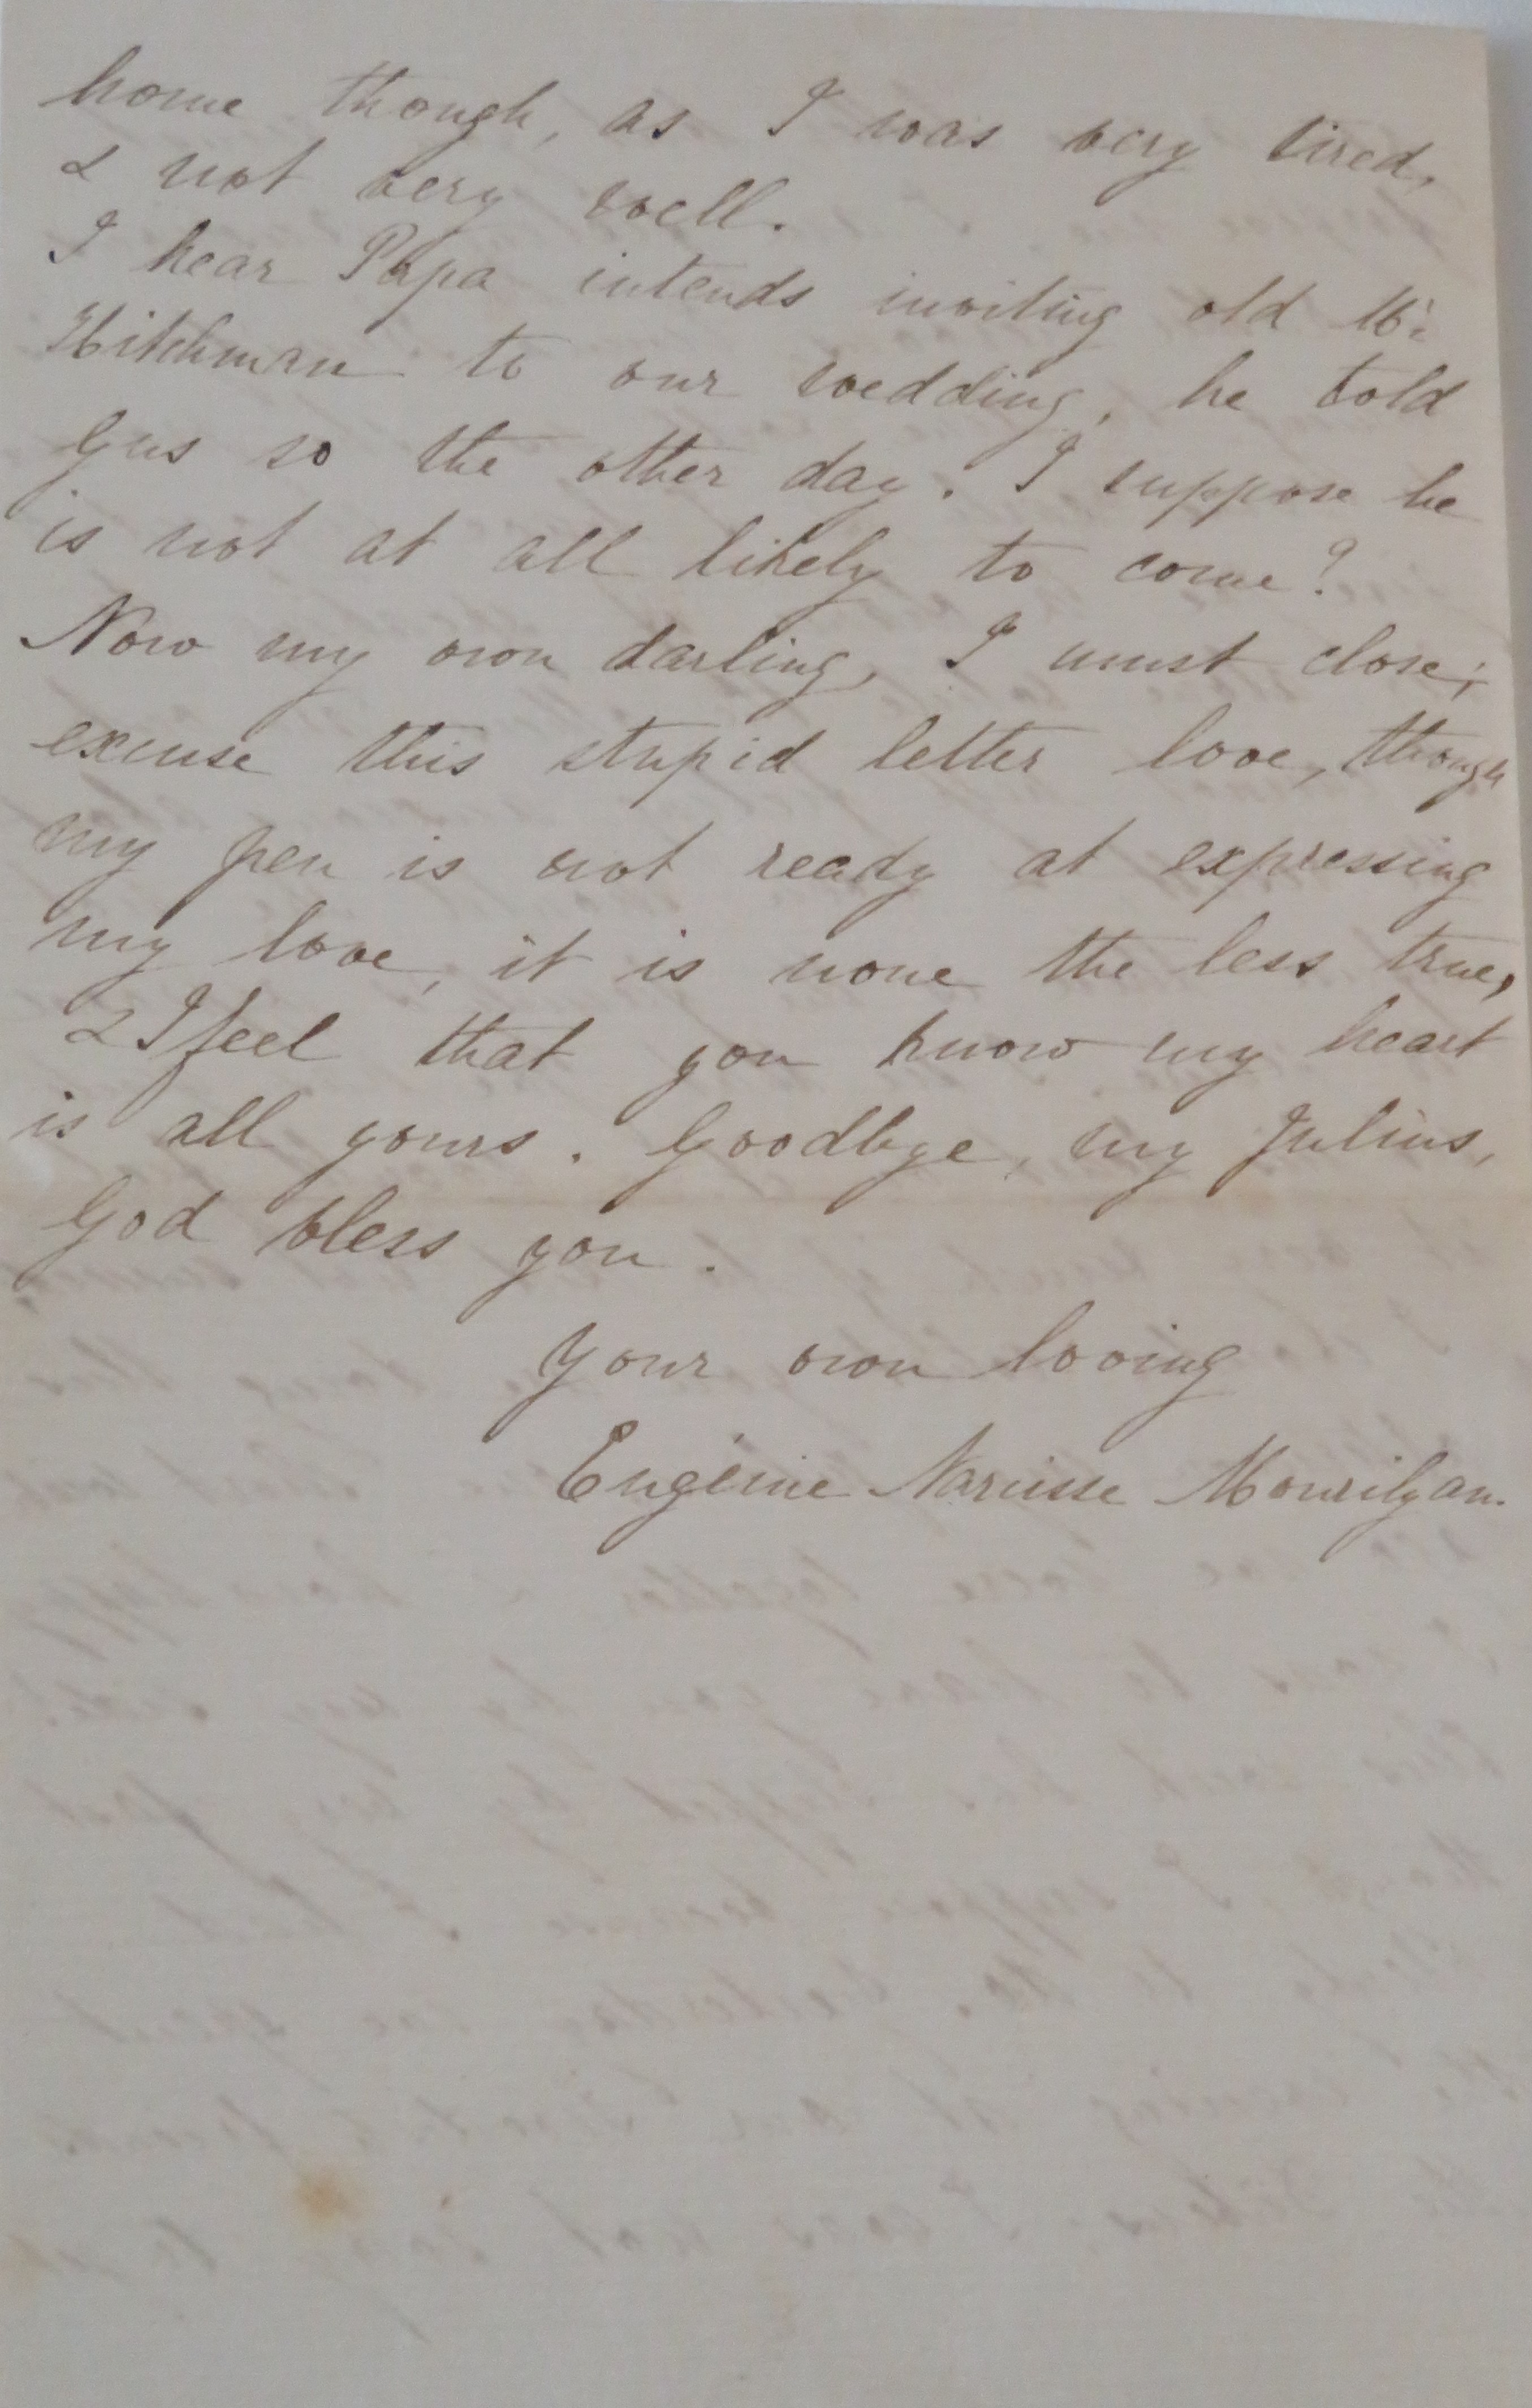 home though, as I was very tired,
& not very well.
I hear Papa intends inviting old Mr.
Hitchman to our wedding, he told
Gus so the other day. I suppose he
is not at all likely to come?
Now my own darling, I must close;
excuse this stupid letter love, though
my pen is not ready at expressing
my love, it is none the less true,
& I feel that you know my heart
is all yours. Goodbye, my Julius,
God bless you.
Your own loving
Eugénie Narcisse Mourilyan.